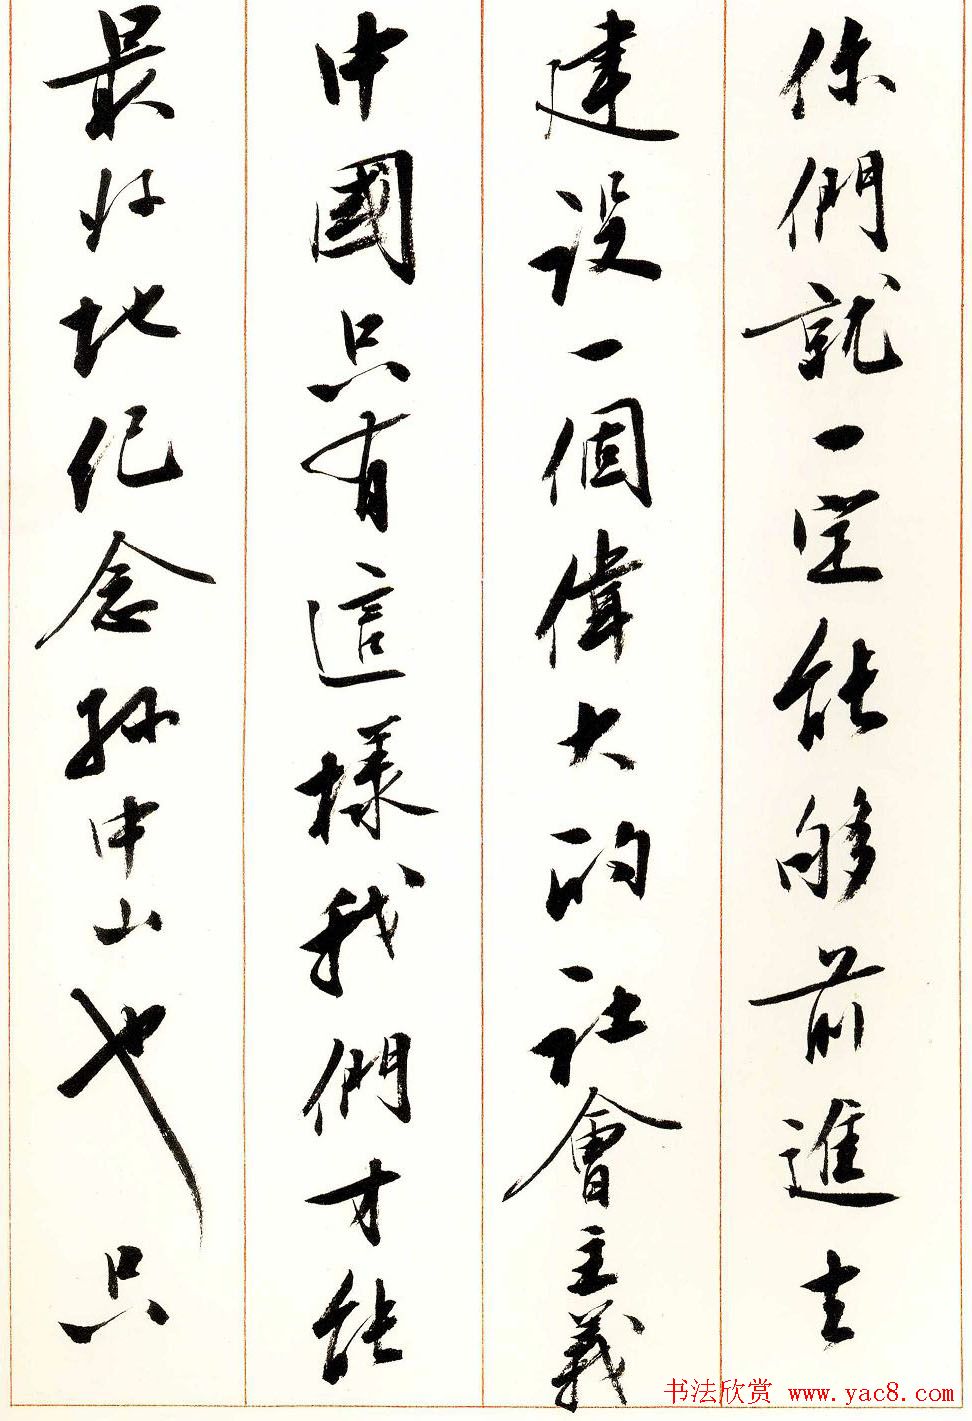 你們就一定能够前進去
建设一個偉大的社會主義
中國只有這樣我們才能
最好地纪念孙中山也只
书法欣赏 www.yac8.com